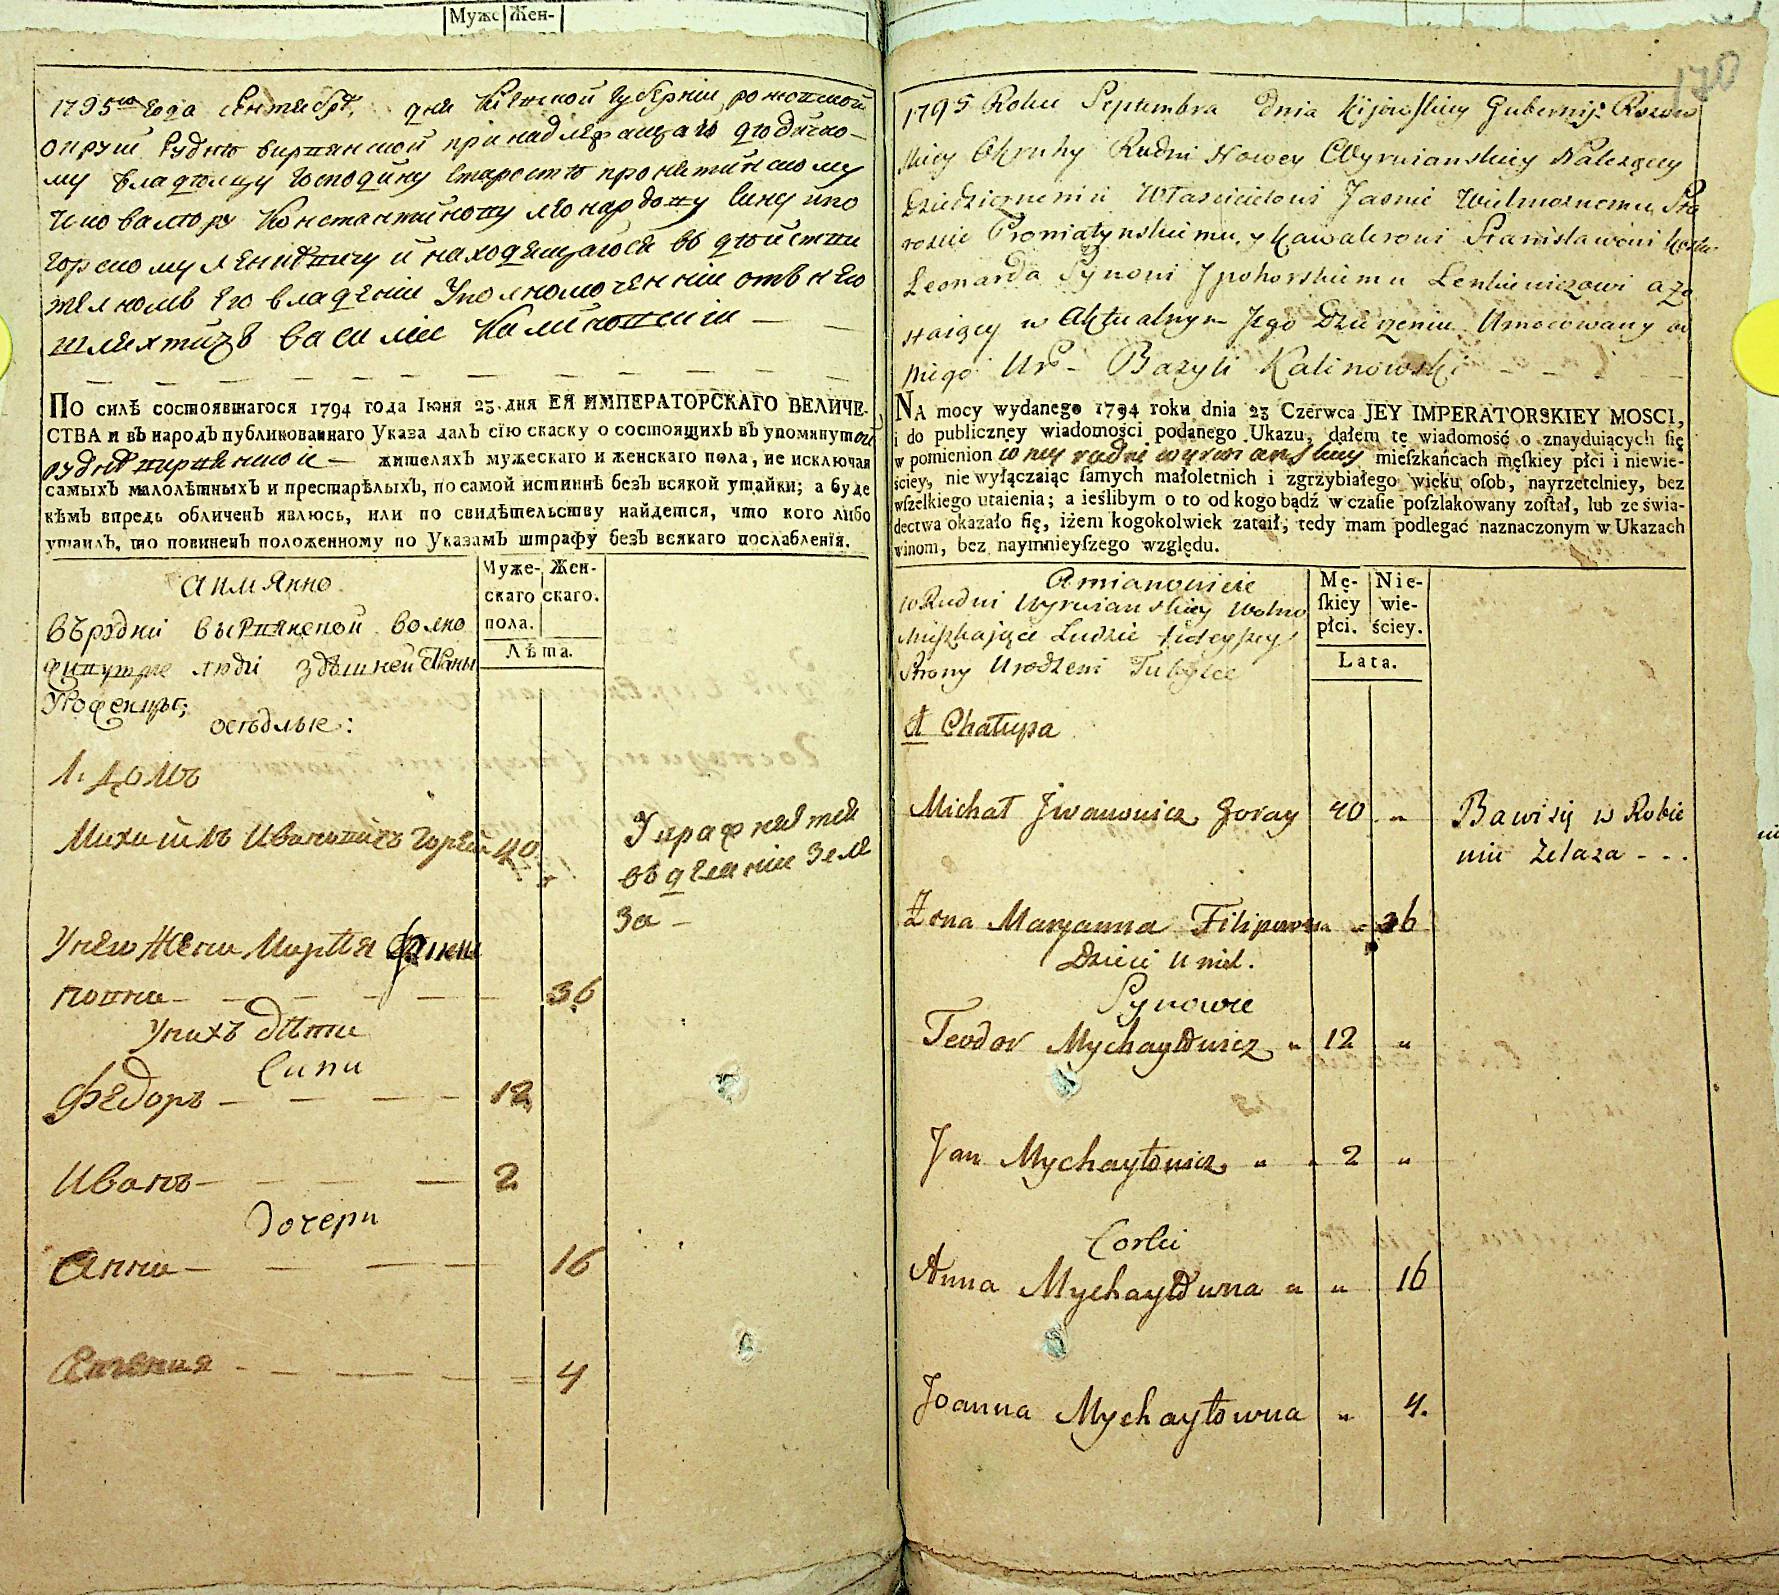 Муже Жен-
170
1795го года сентября дня Киевской губернии
округи Рудни вирвянской принадлежащаго дедично-
му владелцу господину старосте
Леонардову сину ипо
горскому и находящагося въ
его владении уполномоченнии отъ него
шляхтичъ василий Калиновский
ПО силѣ состоявшагося 1794 года Іюня 23. дня ЕЯ ИМПЕРАТОРСКАГО ВЕЛИЧЕ-
СТВА и въ народъ публикованнаго Указа далъ сію скаску о состоящихъ въ упомянутой
рудне вирвянской жителяхъ мужескаго и женскаго пола, не исключая
самыхъ малолѣтныхъ и престарѣлыхъ, по самой истиннѣ безъ всякой утайки; а буде
кѣмъ впредь обличенъ явлюсь, или по свидѣтельству найдется, что кого либо
утаилъ, то повиненъ положенному по Указамъ штрафу безъ всякаго послабленія.
Муже- Жен-
скаго скаго.
пола.
Лѣта.
а имянно
въ рудни вирвянской волно
люди здѣшней страны
Уроженцы;
осѣдлые:
1. домъ
Михайлъ Ивановичъ Горай 40
Упражняется
въ делании желе
за
У него жена Марья
повна 36
У нихъ дѣти
Сини
Федоръ 12
Иванъ 2
Дочери
Анна 16
4
1795 Roku Septembra Dnia Kijowskiey Gubernij
skiey Okruhy Rudni Nowey Wyrwianskiey Należącey
Dziedzicznemu Właścicielowi Jasnie Wielmożnemu Sta
roscie Proniatynskiemu, y Kawalerowi Stanisławowi
Leonarda Synowi Jpohorskiemu Lenkiewiczowi a zo
staiącey w Aktualnym Jego Dzierżeniu Umocowany od
Niego Ur. Bazyli Kalinowski
NA mocy wydanego 1794 roku dnia 23 Czerwca JEY IMPERATORSKIEY MOSCI,
i do publiczney wiadomości podanego Ukazu, dałem tę wiadomość o znayduiących się
w pomienionwney rudni wyrwianskiey mieszkańcach męskiey płci i niewie-
ściey, nie wyłączaiąc samych małoletnich i zgrzybiałego wieku osob, nayrzetelniey, bez
wszelkiego utaienia; a ieślibym o to od kogo bądź w czasie poszlakowany został, lub ze świa-
dectwa okazało się, iżem kogokolwiek zataił, tedy mam podlegać naznaczonym w Ukazach
winom, bez naymnieyszego względu.
Mę- Nie-
skiey wie-
płci. ściey.
Lata.
Amianowicie
w Rudni Wyrwianskiey Wolno
Mieszkaiące Ludzie tuteyszey
Strony Urodzeni Tubylce
1 Chałupa
Michał Jwanowicz Goray 40 "
Bawi się w Robie
niu Żelaza - - .
Żona Maryanna Filipowna " 36
Dzieci u nich.
Synowie
Teodor Mychayłowicz " 12 "
Jan Mychayłowicz " " 2 "
Corki
Anna Mychayłowna " " 16
Joanna Mychayłowna " 4.